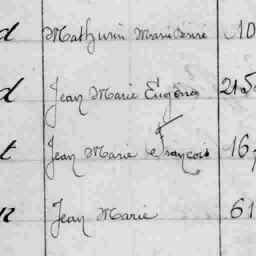 d Mathurin Marie René 10
d Jean Marie Eugène 215
t Jean Marie François 16
n Jean Marie 61